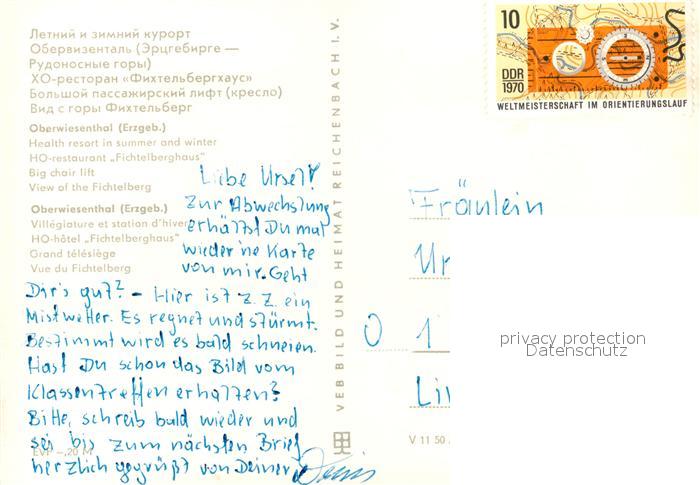 Летний и зимний курорт
Обервизенталь (Эрцгебирге —
Рудоносные горы)
ХО-ресторан «Фихтельбергхаус»
Большой пассажирский лифт (кресло)
Вид с горы Фихтельберг
Oberwiesenthal (Erzgeb.)
Health resort in summer and winter
HO-restaurant „Fichtelberghaus"
Big chair lift
View of the Fichtelberg
Oberwiesenthal (Erzgeb.)
Villégiature et station d'hiver
HO-hôtel „Fichtelberghaus"
Grand télésiège
Vue du Fichtelberg
EVP –,20 M
Liebe Ursel!
Zur Abwechslung
erhältst Du mal
wieder 'ne Karte
von mir. Geht
Dir's gut? – Hier ist z. Z. ein
Mistwetter. Es regnet und stürmt.
Bestimmt wird es bald schneien.
Hast Du schon das Bild vom
Klassentreffen erhalten?
Bitte, schreib bald wieder und
sei bis zum nächsten Brief
herzlich gegrüßt von Deiner
VEB BILD UND HEIMAT REICHENBACH I. V.
10
DDR
1970
WELTMEISTERSCHAFT IM ORIENTIERUNGSLAUF
Fräulein
Ur
O 1
Lin
privacy protection
Datenschutz
V 11 50